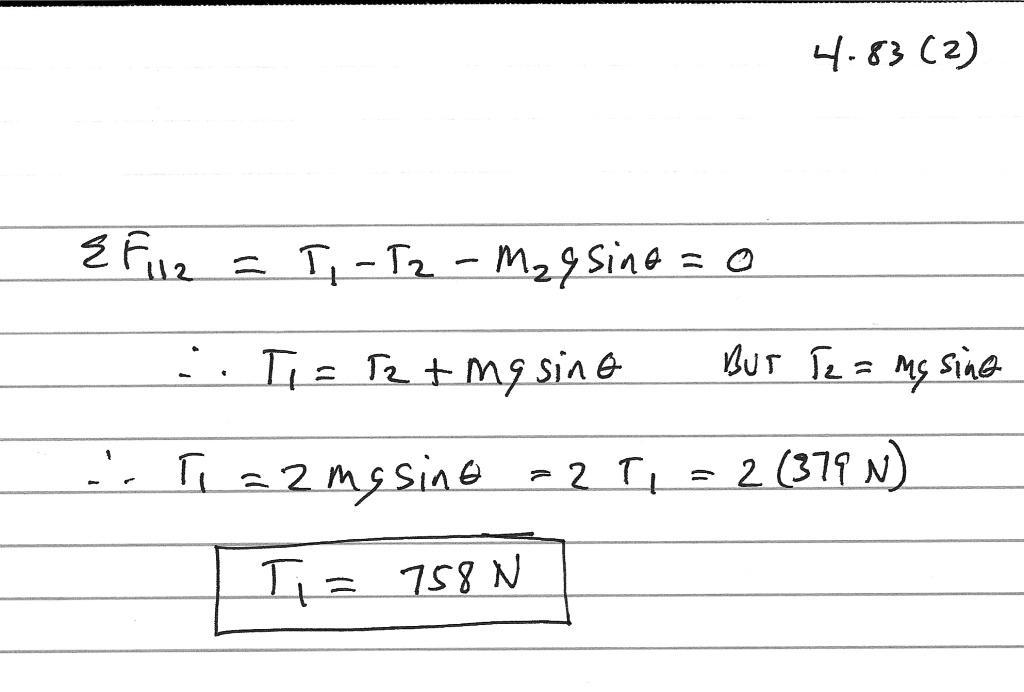 4.83 (2)
ΣF||2 = T1 - T2 - M2gsinθ = 0
∴ T1 = T2 + mgsinθ BUT T2 = mg sinθ
∴ T1 = 2mgsinθ = 2T1 = 2(379 N)
T1 = 758 N